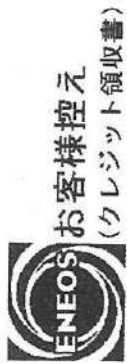 ENEOS
お客様控え
(クレジット領収書)